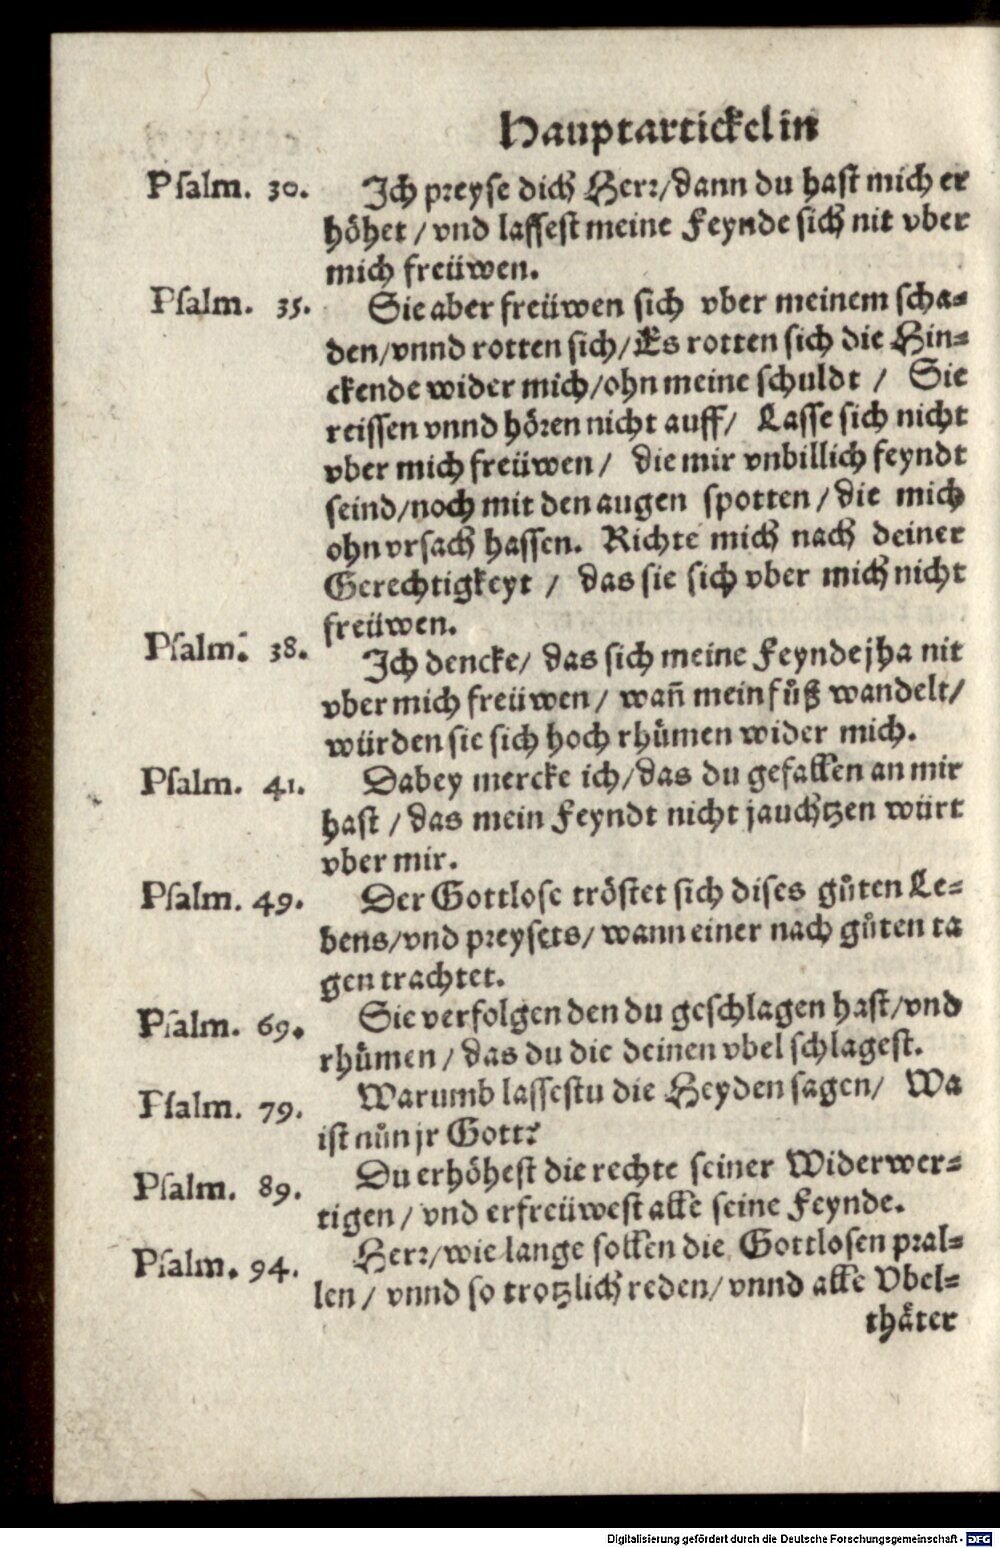 Hauptartickel in
Psalm. 30. Ich preyse dich Herr/dann du hast mich er
höhet / vnd lassest meine Feynde sich nit vber
mich freüwen.
Psalm. 35. Sie aber freüwen sich vber meinem scha-
den/vnnd rotten sich/Es rotten sich die Hin-
ckende wider mich/ohn meine schuldt / Sie
reissen vnnd hören nicht auff/ Lasse sich nicht
vber mich freüwen / die mir vnbillich feyndt
seind/noch mit den augen spotten / die mich
ohn vrsach hassen. Richte mich nach deiner
Gerechtigkeyt / das sie sich vber mich nicht
freüwen.
Psalm. 38. Ich dencke/ das sich meine Feynde jha nit
vber mich freüwen / wañ mein fůß wandelt/
würden sie sich hoch rhümen wider mich.
Psalm. 41. Dabey mercke ich/das du gefallen an mir
hast / das mein Feyndt nicht jauchtzen würt
vber mir.
Psalm. 49. Der Gottlose tröstet sich dises gůten Le-
bens/vnd preysets/ wann einer nach gůten ta
gen trachtet.
Psalm. 69. Sie verfolgen den du geschlagen hast/vnd
rhümen / das du die deinen vbel schlagest.
Psalm. 79. Warumb lassestu die Heyden sagen/ Wa
ist nůn jr Gott?
Psalm. 89. Du erhöhest die rechte seiner Widerwer-
tigen / vnd erfreüwest alle seine Feynde.
Psalm. 94. Herr/wie lange sollen die Gottlosen pral-
len / vnnd so trotzlich reden/ vnnd alle Vbel-
thäter
Digitalisierung gefördert durch die Deutsche Forschungsgemeinschaft - DFG